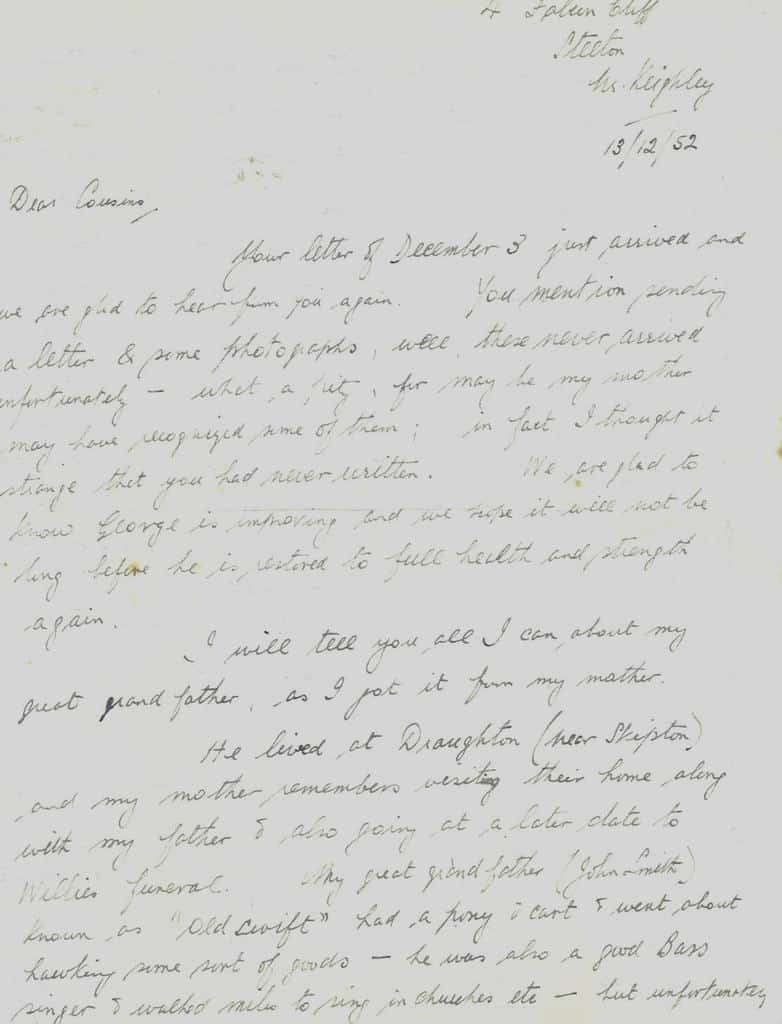 4 Falcon Cliff
Steeton
Nr. Keighley
13/12/52
Dear Cousins,
Your letter of December 3 just arrived and
we are glad to hear from you again. You mention sending
a letter & some photographs, well, these never arrived
unfortunately – what a pity, for may be my mother
may have recognized some of them; in fact I thought it
strange that you had never written. We are glad to
know George is improving and we hope it will not be
long before he is restored to full health and strength
again.
I will tell you all I can about my
great grandfather, as I got it from my mother.
He lived at Draughton (near Skipton)
and my mother remembers visiting their home along
with my father & also going at a later date to
Willies funeral. My great grandfather (John Smith)
known as "Old Swift" had a pony & cart & went about
hawking some sort of goods – he was also a good Bass
singer & walked miles to sing in churches etc – but unfortunately